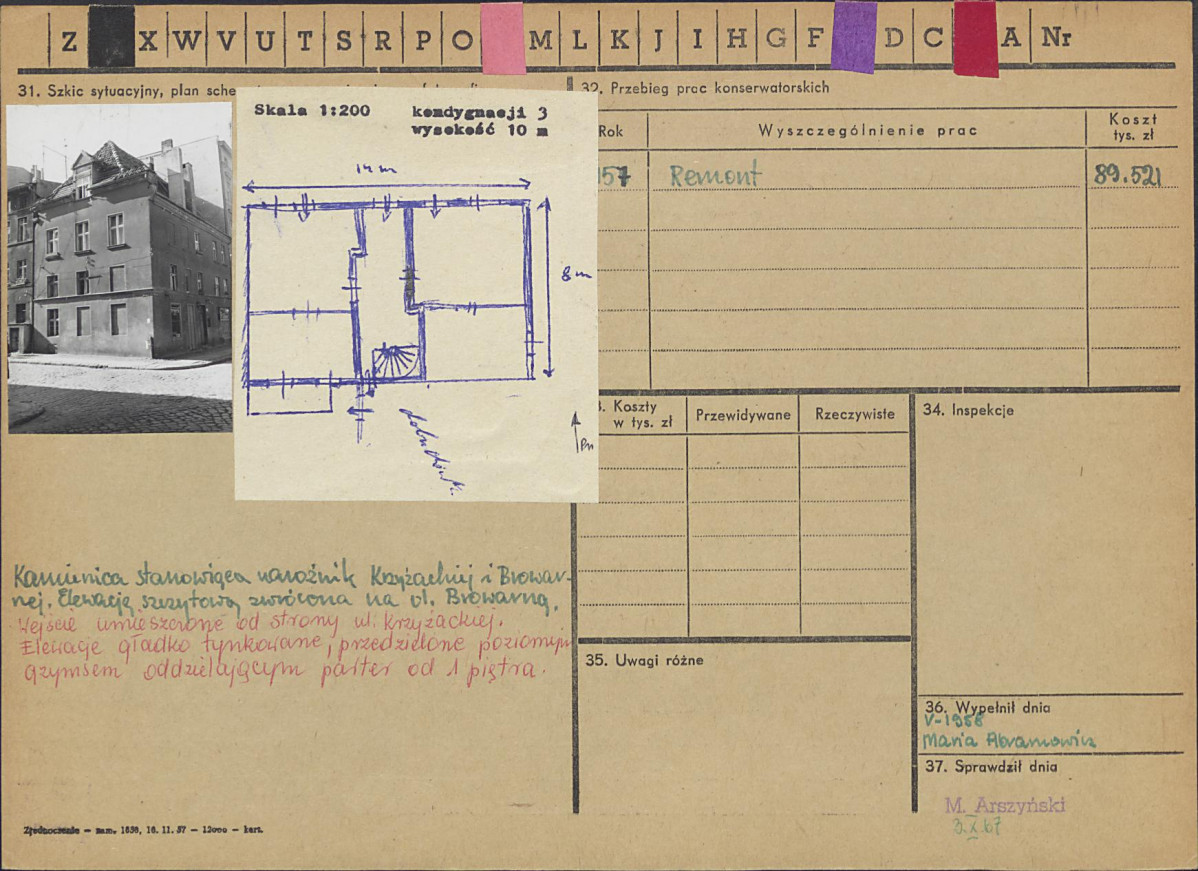 Z X W V U T S R P O M L K J I H G F D C A Nr
31. Szkic sytuacyjny, plan
32. Przebieg prac konserwatorskich
Skala 1:200 kondygnacji 3
wysokość 10 m
Rok Wyszczególnienie prac Koszt
tys. zł
57 Remont 89.521
14 m
8 m
Pn
Koszty
w tys. zł
Przewidywane
Rzeczywiste
34. Inspekcje
Kamienica stanowiąca narożnik Krzyżackiej i Browar-
nej. Elewacją szczytową zwrócona na ul. Browarną.
Wejście umieszczone od strony ul. Krzyżackiej.
Elewacje gładko tynkowane, przedzielone poziomym
gzymsem oddzielającym parter od 1 piętra.
35. Uwagi różne
36. Wypełnił dnia
V-1958
Maria Abramowicz
37. Sprawdził dnia
M. Arszyński
3.X.67
Zjednoczenie — zam. 1838, 16. 11. 57 — 12000 — kart.